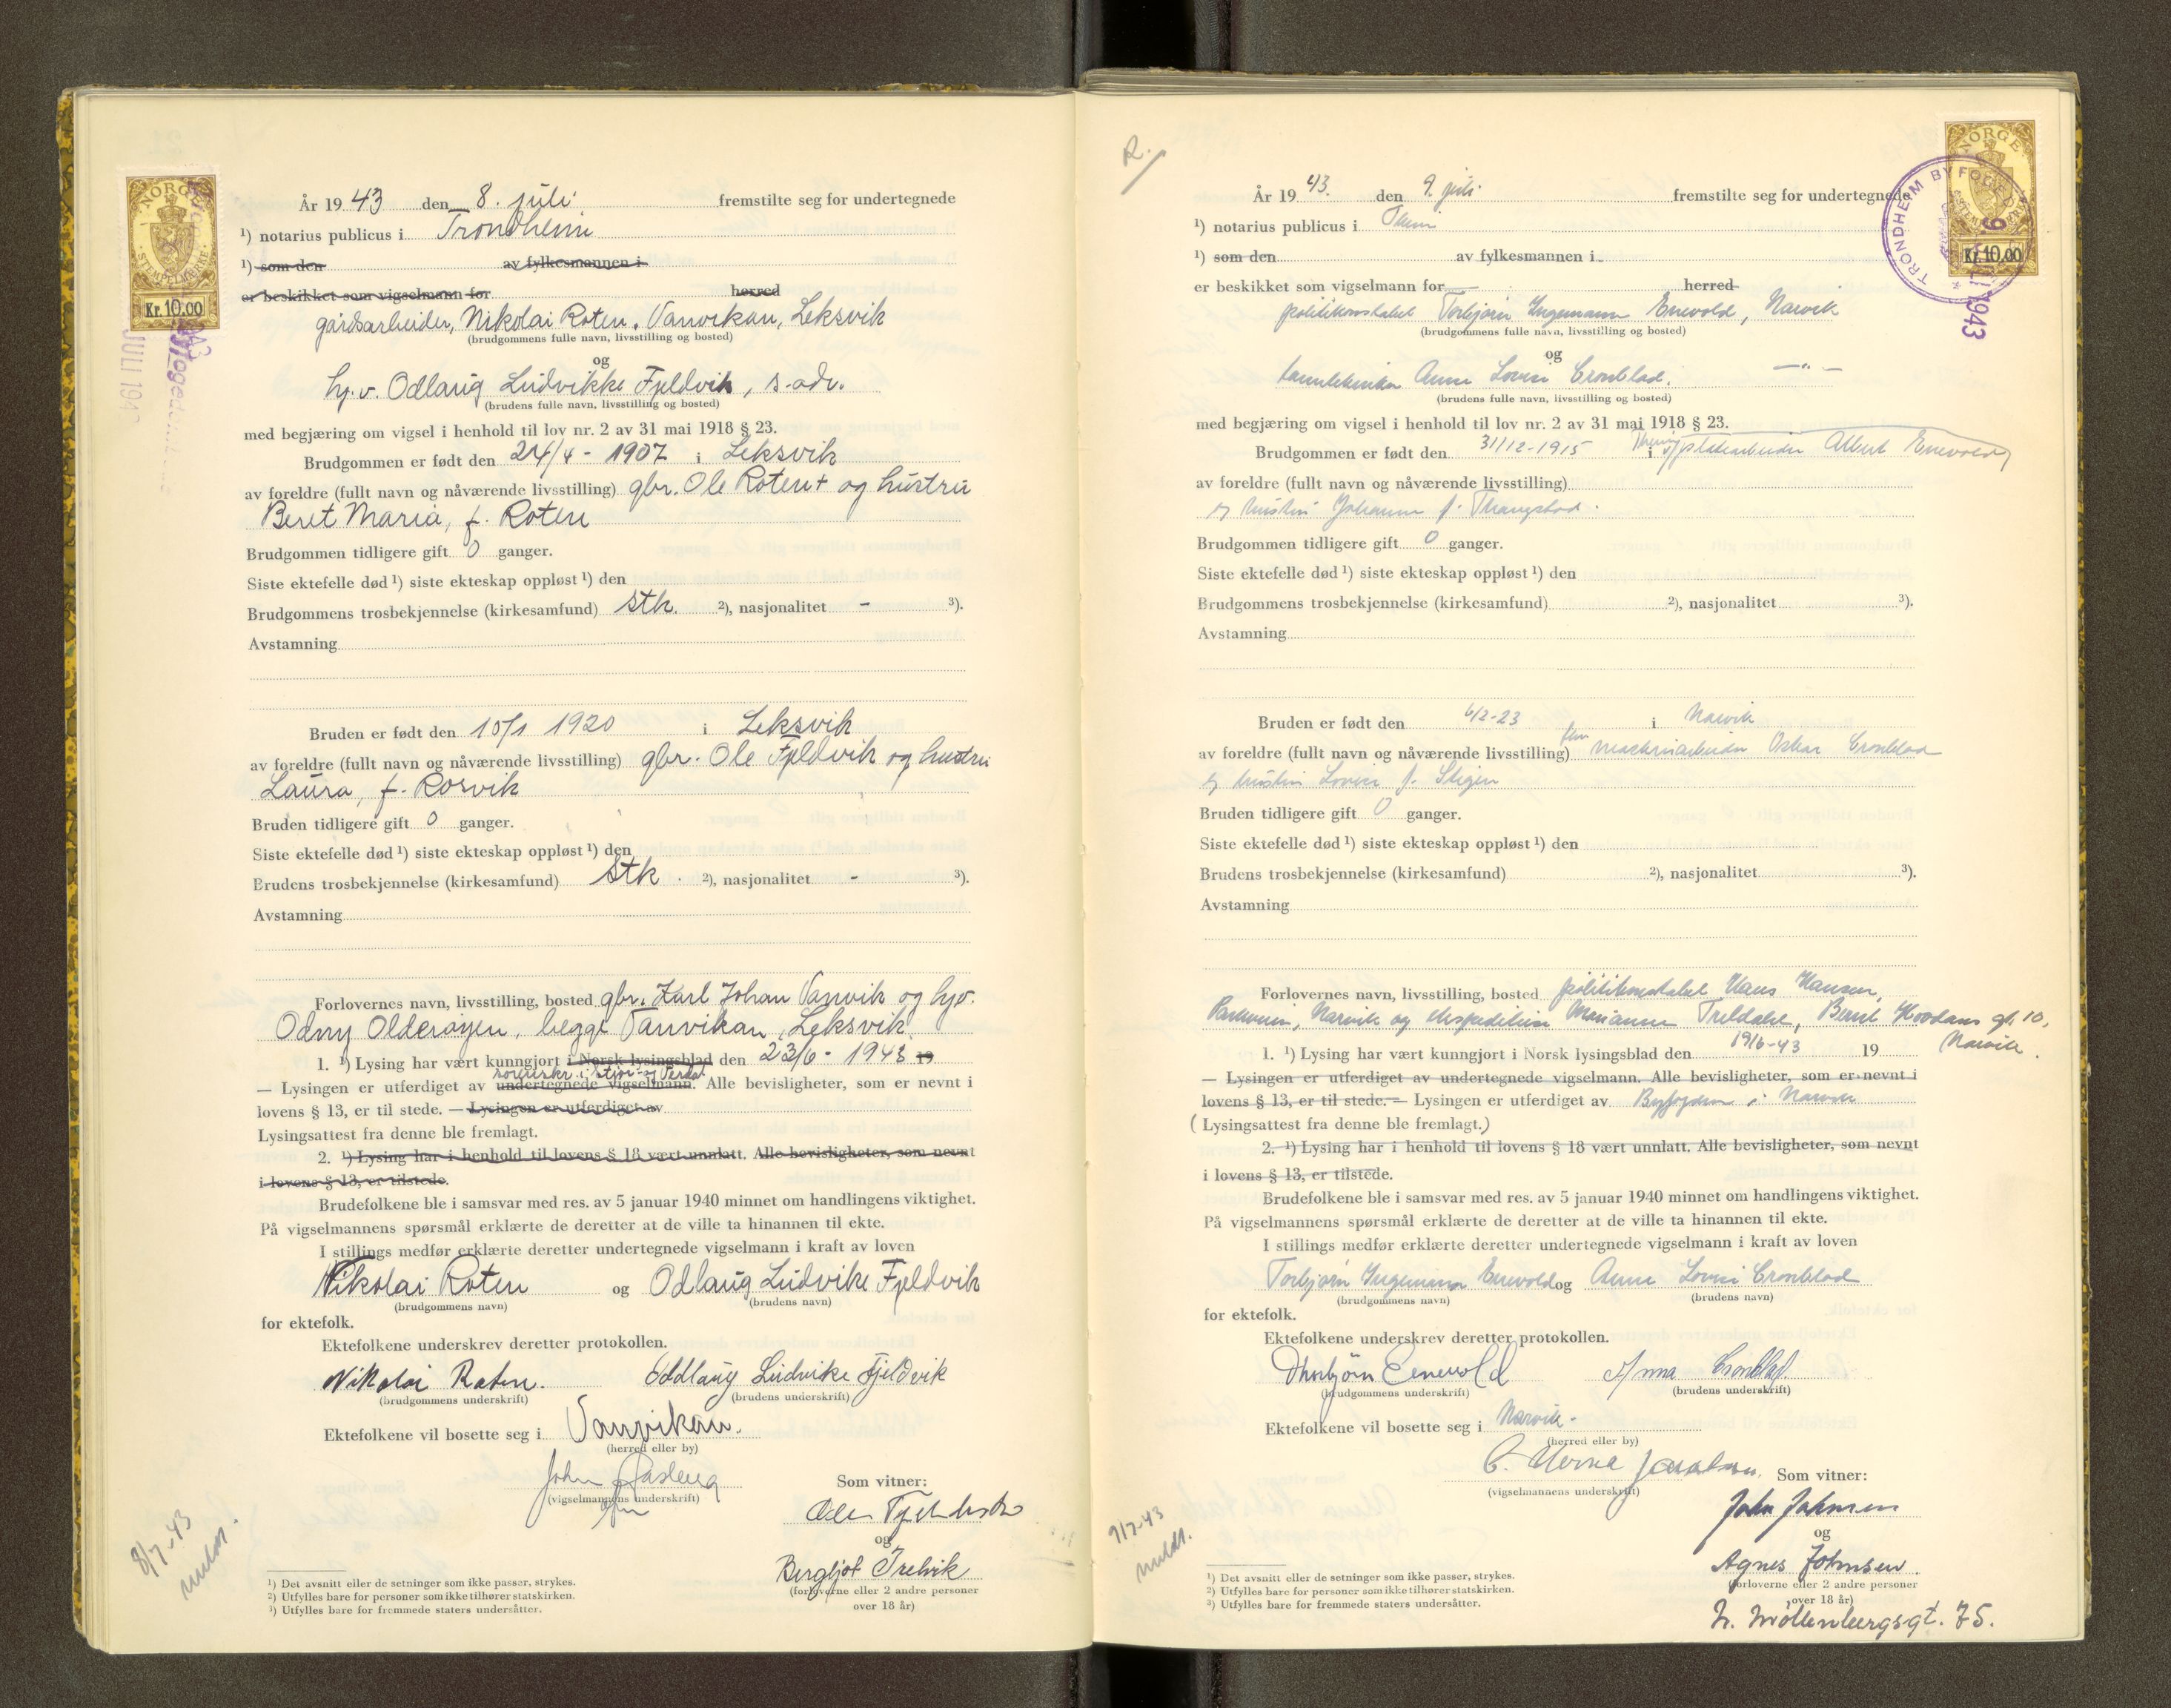 NORGE
STEMPELMERKE
Kr. 10.00
JULI 194
År 19 43 den 8. juli fremstilte seg for undertegnede
¹) notarius publicus i Trondheim
¹) som den av fylkesmannen i
er beskikket som vigselmann for herred
gårdsarbeider, Nikolai Roten, Vanvikan, Leksvik
(brudgommens fulle navn, livsstilling og bosted)
og
hj.v. Odlaug Ludvikke Fjeldvik, s. adr.
(brudens fulle navn, livsstilling og bosted)
med begjæring om vigsel i henhold til lov nr. 2 av 31 mai 1918 § 23.
Brudgommen er født den 24/4 - 1907 i Leksvik
av foreldre (fullt navn og nåværende livsstilling) gbr. Ole Roten + og hustru
Beret Maria, f. Roten
Brudgommen tidligere gift 0 ganger.
Siste ektefelle død ¹) siste ekteskap oppløst ¹) den
Brudgommens trosbekjennelse (kirkesamfund) Stk. ²), nasjonalitet - ³).
Avstamning
Bruden er født den 10/1 1920 i Leksvik
av foreldre (fullt navn og nåværende livsstilling) gbr. Ole Fjeldvik og hustru
Laura, f. Rosvik
Bruden tidligere gift 0 ganger.
Siste ektefelle død ¹) siste ekteskap oppløst ¹) den
Brudens trosbekjennelse (kirkesamfund) Stk. ²), nasjonalitet - ³).
Avstamning
Forlovernes navn, livsstilling, bosted gbr. Karl Johan Vanvik og hjv.
Odny Olderøyen, begge Vanvikan, Leksvik
1. ¹) Lysing har vært kunngjort i Norsk lysingsblad den 23/6 - 1943 19
sorenskr. i Stjør- og Verdal
— Lysingen er utferdiget av undertegnede vigselmann. Alle bevisligheter, som er nevnt i
lovens § 13, er til stede. — Lysingen er utferdiget av
Lysingsattest fra denne ble fremlagt.
2. ¹) Lysing har i henhold til lovens § 18 vært unnlatt. Alle bevisligheter, som nevnt
i lovens § 13, er tilstede.
Brudefolkene ble i samsvar med res. av 5 januar 1940 minnet om handlingens viktighet.
På vigselmannens spørsmål erklærte de deretter at de ville ta hinannen til ekte.
I stillings medfør erklærte deretter undertegnede vigselmann i kraft av loven
Nikolai Roten og Odlaug Ludvike Fjeldvik
(brudgommens navn) (brudens navn)
for ektefolk.
Ektefolkene underskrev deretter protokollen.
Nikolai Roten. Oddlaug Ludvike Fjeldvik
(brudgommens underskrift) (brudens underskrift)
Ektefolkene vil bosette seg i Vanvikan.
(herred eller by)
John Aasberg
(vigselmannens underskrift)
Som vitner:
Ole Fjeldvik
og
Bergljot Trelvik
(forloverne eller 2 andre personer
over 18 år)
8/7-43
meldt.
¹) Det avsnitt eller de setninger som ikke passer, strykes.
²) Utfylles bare for personer som ikke tilhører statskirken.
³) Utfylles bare for fremmede staters undersåtter.
R.
NORGE
Kr. 10.00
TRONDHEM BYFOGE
1943
År 19 43. den 9. juli. fremstilte seg for undertegnede
¹) notarius publicus i Theim
¹) som den av fylkesmannen i
er beskikket som vigselmann for herred
politikonstabel Torbjørn Ingemann Enevold, Narvik
(brudgommens fulle navn, livsstilling og bosted)
og
tanntekniker Anna Lovise Cronblad. — " —
(brudens fulle navn, livsstilling og bosted)
med begjæring om vigsel i henhold til lov nr. 2 av 31 mai 1918 § 23.
Brudgommen er født den 31/12-1915 i platearbeider Albert Enevold
av foreldre (fullt navn og nåværende livsstilling)
og hustru Johanna f. Thangstad.
Brudgommen tidligere gift 0 ganger.
Siste ektefelle død ¹) siste ekteskap oppløst ¹) den
Brudgommens trosbekjennelse (kirkesamfund) ²), nasjonalitet ³).
Avstamning
Bruden er født den 6/2-23 i Narvik
av foreldre (fullt navn og nåværende livsstilling) maskinarbeider Oskar Cronblad
og hustru Lovise f. Stigen
Bruden tidligere gift 0 ganger.
Siste ektefelle død ¹) siste ekteskap oppløst ¹) den
Brudens trosbekjennelse (kirkesamfund) ²), nasjonalitet ³).
Avstamning
Forlovernes navn, livsstilling, bosted politikonstabel Hans Hansen,
Parkveien, Narvik og ekspeditrise Marianne Treldahl, gt. 10,
Narvik.
1. ¹) Lysing har vært kunngjort i Norsk lysingsblad den 19/6-43 19
— Lysingen er utferdiget av undertegnede vigselmann. Alle bevisligheter, som er nevnt i
lovens § 13, er til stede. — Lysingen er utferdiget av Byfogden i Narvik
(Lysingsattest fra denne ble fremlagt.)
2. ¹) Lysing har i henhold til lovens § 18 vært unnlatt. Alle bevisligheter, som nevnt
i lovens § 13, er tilstede.
Brudefolkene ble i samsvar med res. av 5 januar 1940 minnet om handlingens viktighet.
På vigselmannens spørsmål erklærte de deretter at de ville ta hinannen til ekte.
I stillings medfør erklærte deretter undertegnede vigselmann i kraft av loven
Torbjørn Ingemann Enevold og Anna Lovise Cronblad
(brudgommens navn) (brudens navn)
for ektefolk.
Ektefolkene underskrev deretter protokollen.
Thorbjørn Enevold Anna Cronblad.
(brudgommens underskrift) (brudens underskrift)
Ektefolkene vil bosette seg i Narvik.
(herred eller by)
(vigselmannens underskrift)
Som vitner:
John Johnsen
og
Agnes Johnsen.
(forloverne eller 2 andre personer
over 18 år)
N. Møllenbergsgt. 75.
9/7-43
meldt.
¹) Det avsnitt eller de setninger som ikke passer, strykes.
²) Utfylles bare for personer som ikke tilhører statskirken.
³) Utfylles bare for fremmede staters undersåtter.